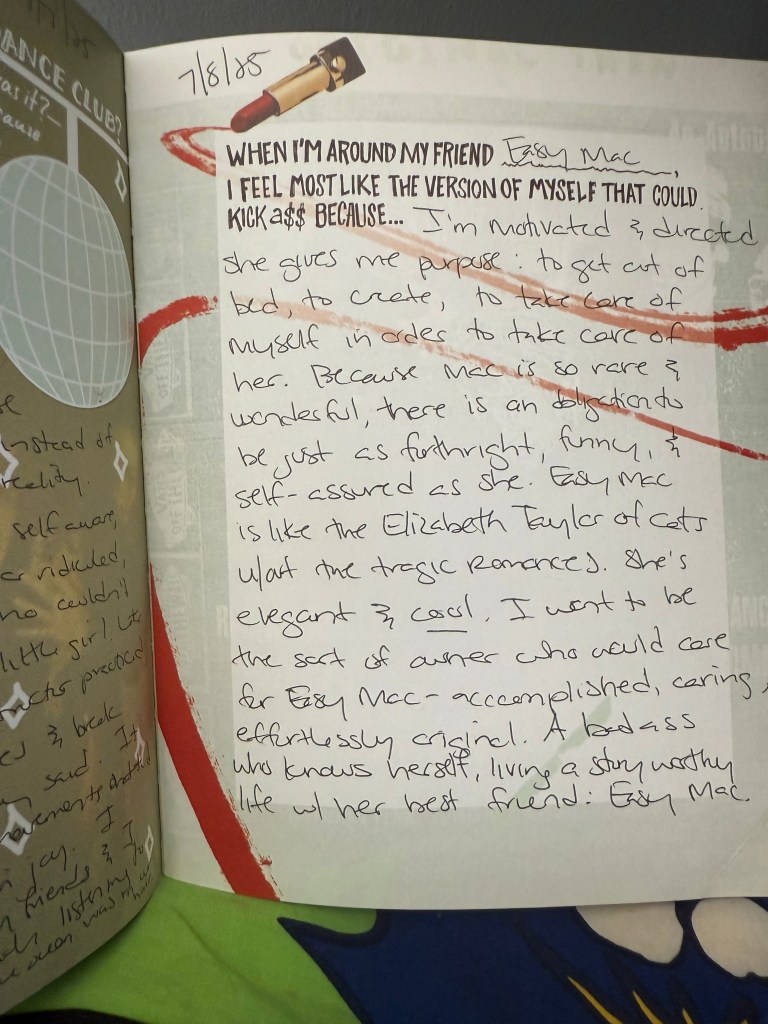 DANCE CLUB?
was it?—
cause
instead of
reality.
self aware,
or ridiculed,
who couldn't
little girl.
practiced
& break
said. It
movements
joy. I
friends & I
listening to
7/8/25
WHEN I'M AROUND MY FRIEND Easy Mac,
I FEEL MOST LIKE THE VERSION OF MYSELF THAT COULD
KICK a$$ BECAUSE... I'm motivated & directed
she gives me purpose: to get out of
bed, to create, to take care of
myself in order to take care of
her. Because Mac is so rare &
wonderful, there is an obligation to
be just as forthright, funny, &
self-assured as she. Easy Mac
is like the Elizabeth Taylor of Cats
w/out the tragic romances. She's
elegant & cool. I want to be
the sort of owner who would care
for Easy Mac - accomplished, caring,
effortlessly original. A badass
who knows herself, living a story worthy
life w/ her best friend: Easy Mac.